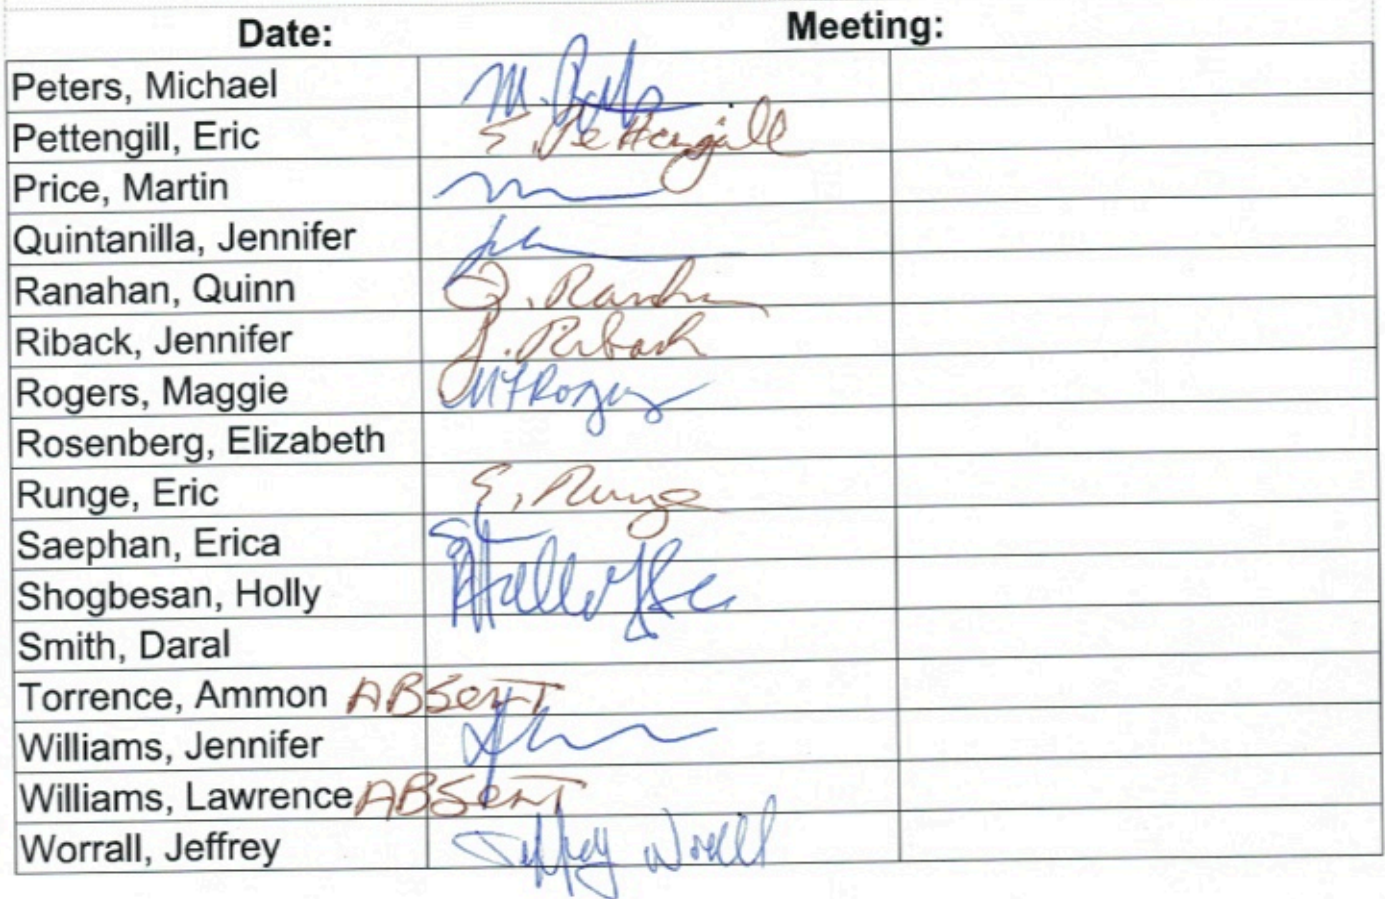 Date: Meeting:
Peters, Michael M.
Pettengill, Eric E. Pettengill
Price, Martin
Quintanilla, Jennifer
Ranahan, Quinn Q.
Riback, Jennifer J. Riback
Rogers, Maggie MFRogers
Rosenberg, Elizabeth
Runge, Eric E. Runge
Saephan, Erica
Shogbesan, Holly
Smith, Daral
Torrence, Ammon ABSENT
Williams, Jennifer
Williams, Lawrence ABSENT
Worrall, Jeffrey Jeffrey Worrall